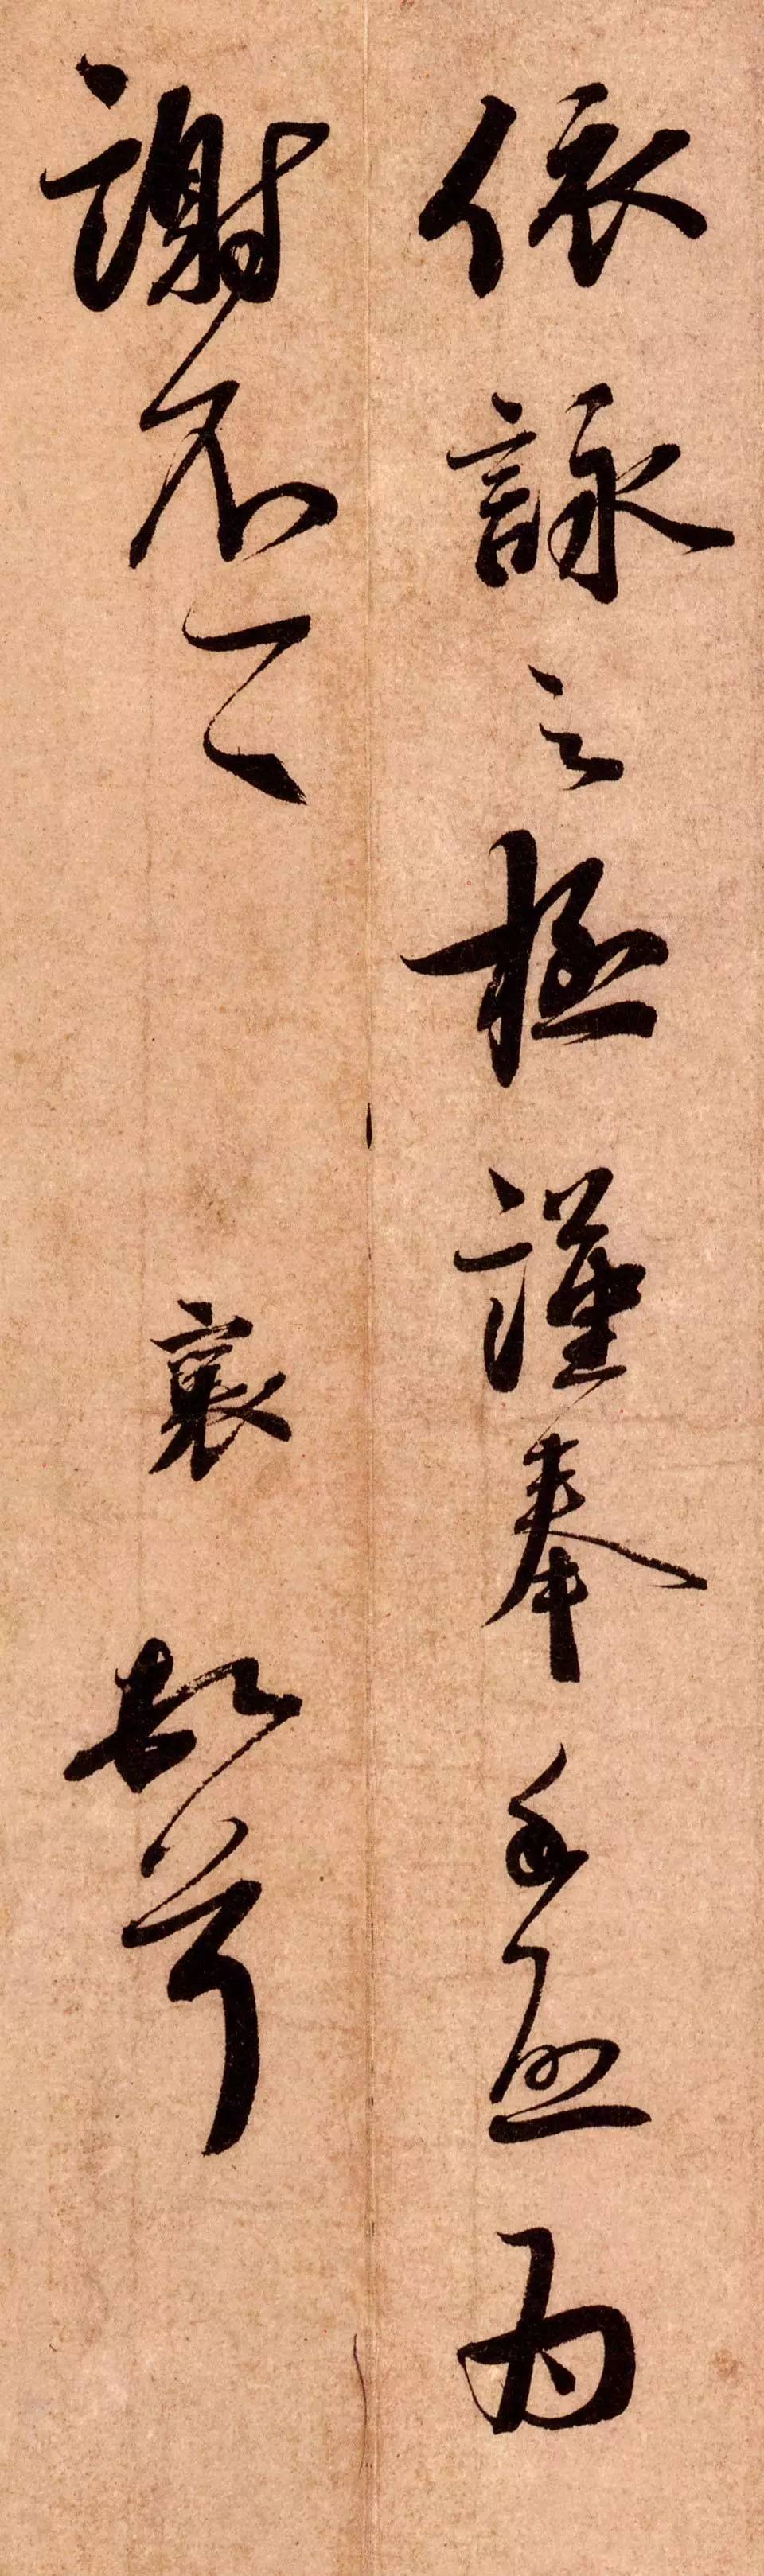 依詠之極謹奉手啟為
謝不一一 襄頓首